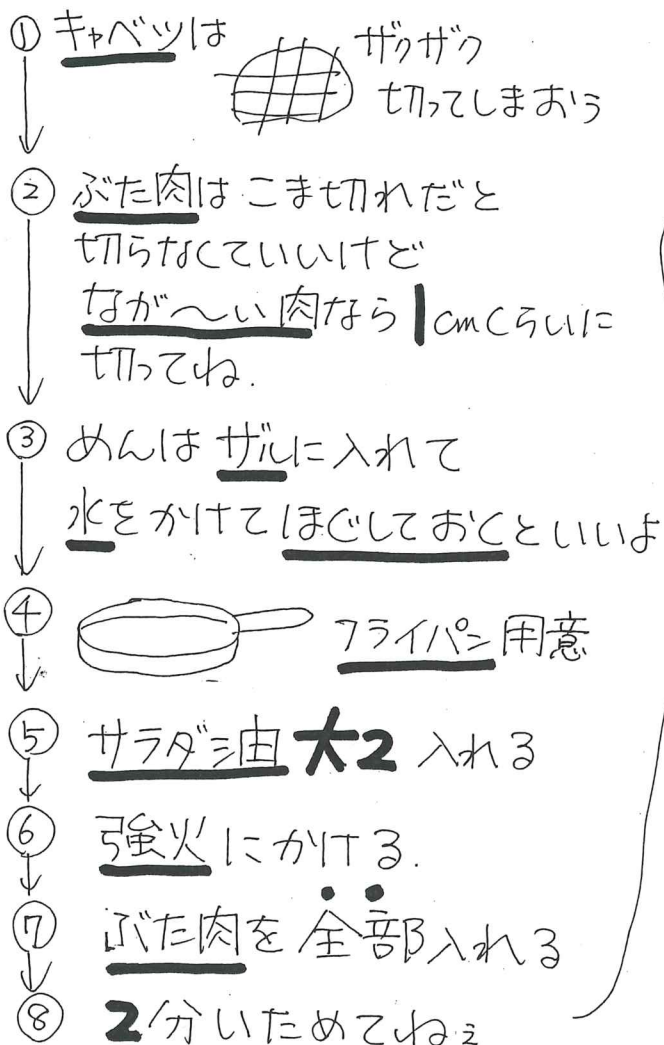 ① キャベツは
ザクザク
切ってしまおう
② ぶた肉はこま切れだと
切らなくていいけど
なが〜い肉なら1cmくらいに
切ってね.
③ めんはザルに入れて
水をかけてほぐしておくといいよ
④ フライパン用意
⑤ サラダ油大2入れる
⑥ 強火にかける.
⑦ ぶた肉を全部入れる
⑧ 2分いためてねぇ